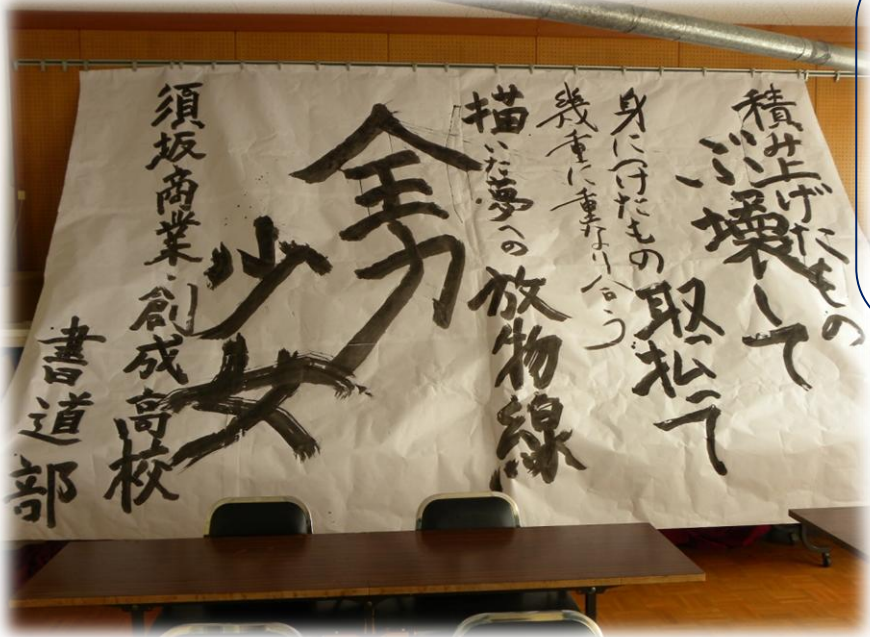 積み上げたもの
ぶっ壊して
身に付けたもの
取っ払って
幾重に重なり合う
描いた夢への放物線
全力
少女
須坂商業・創成高校
書道部